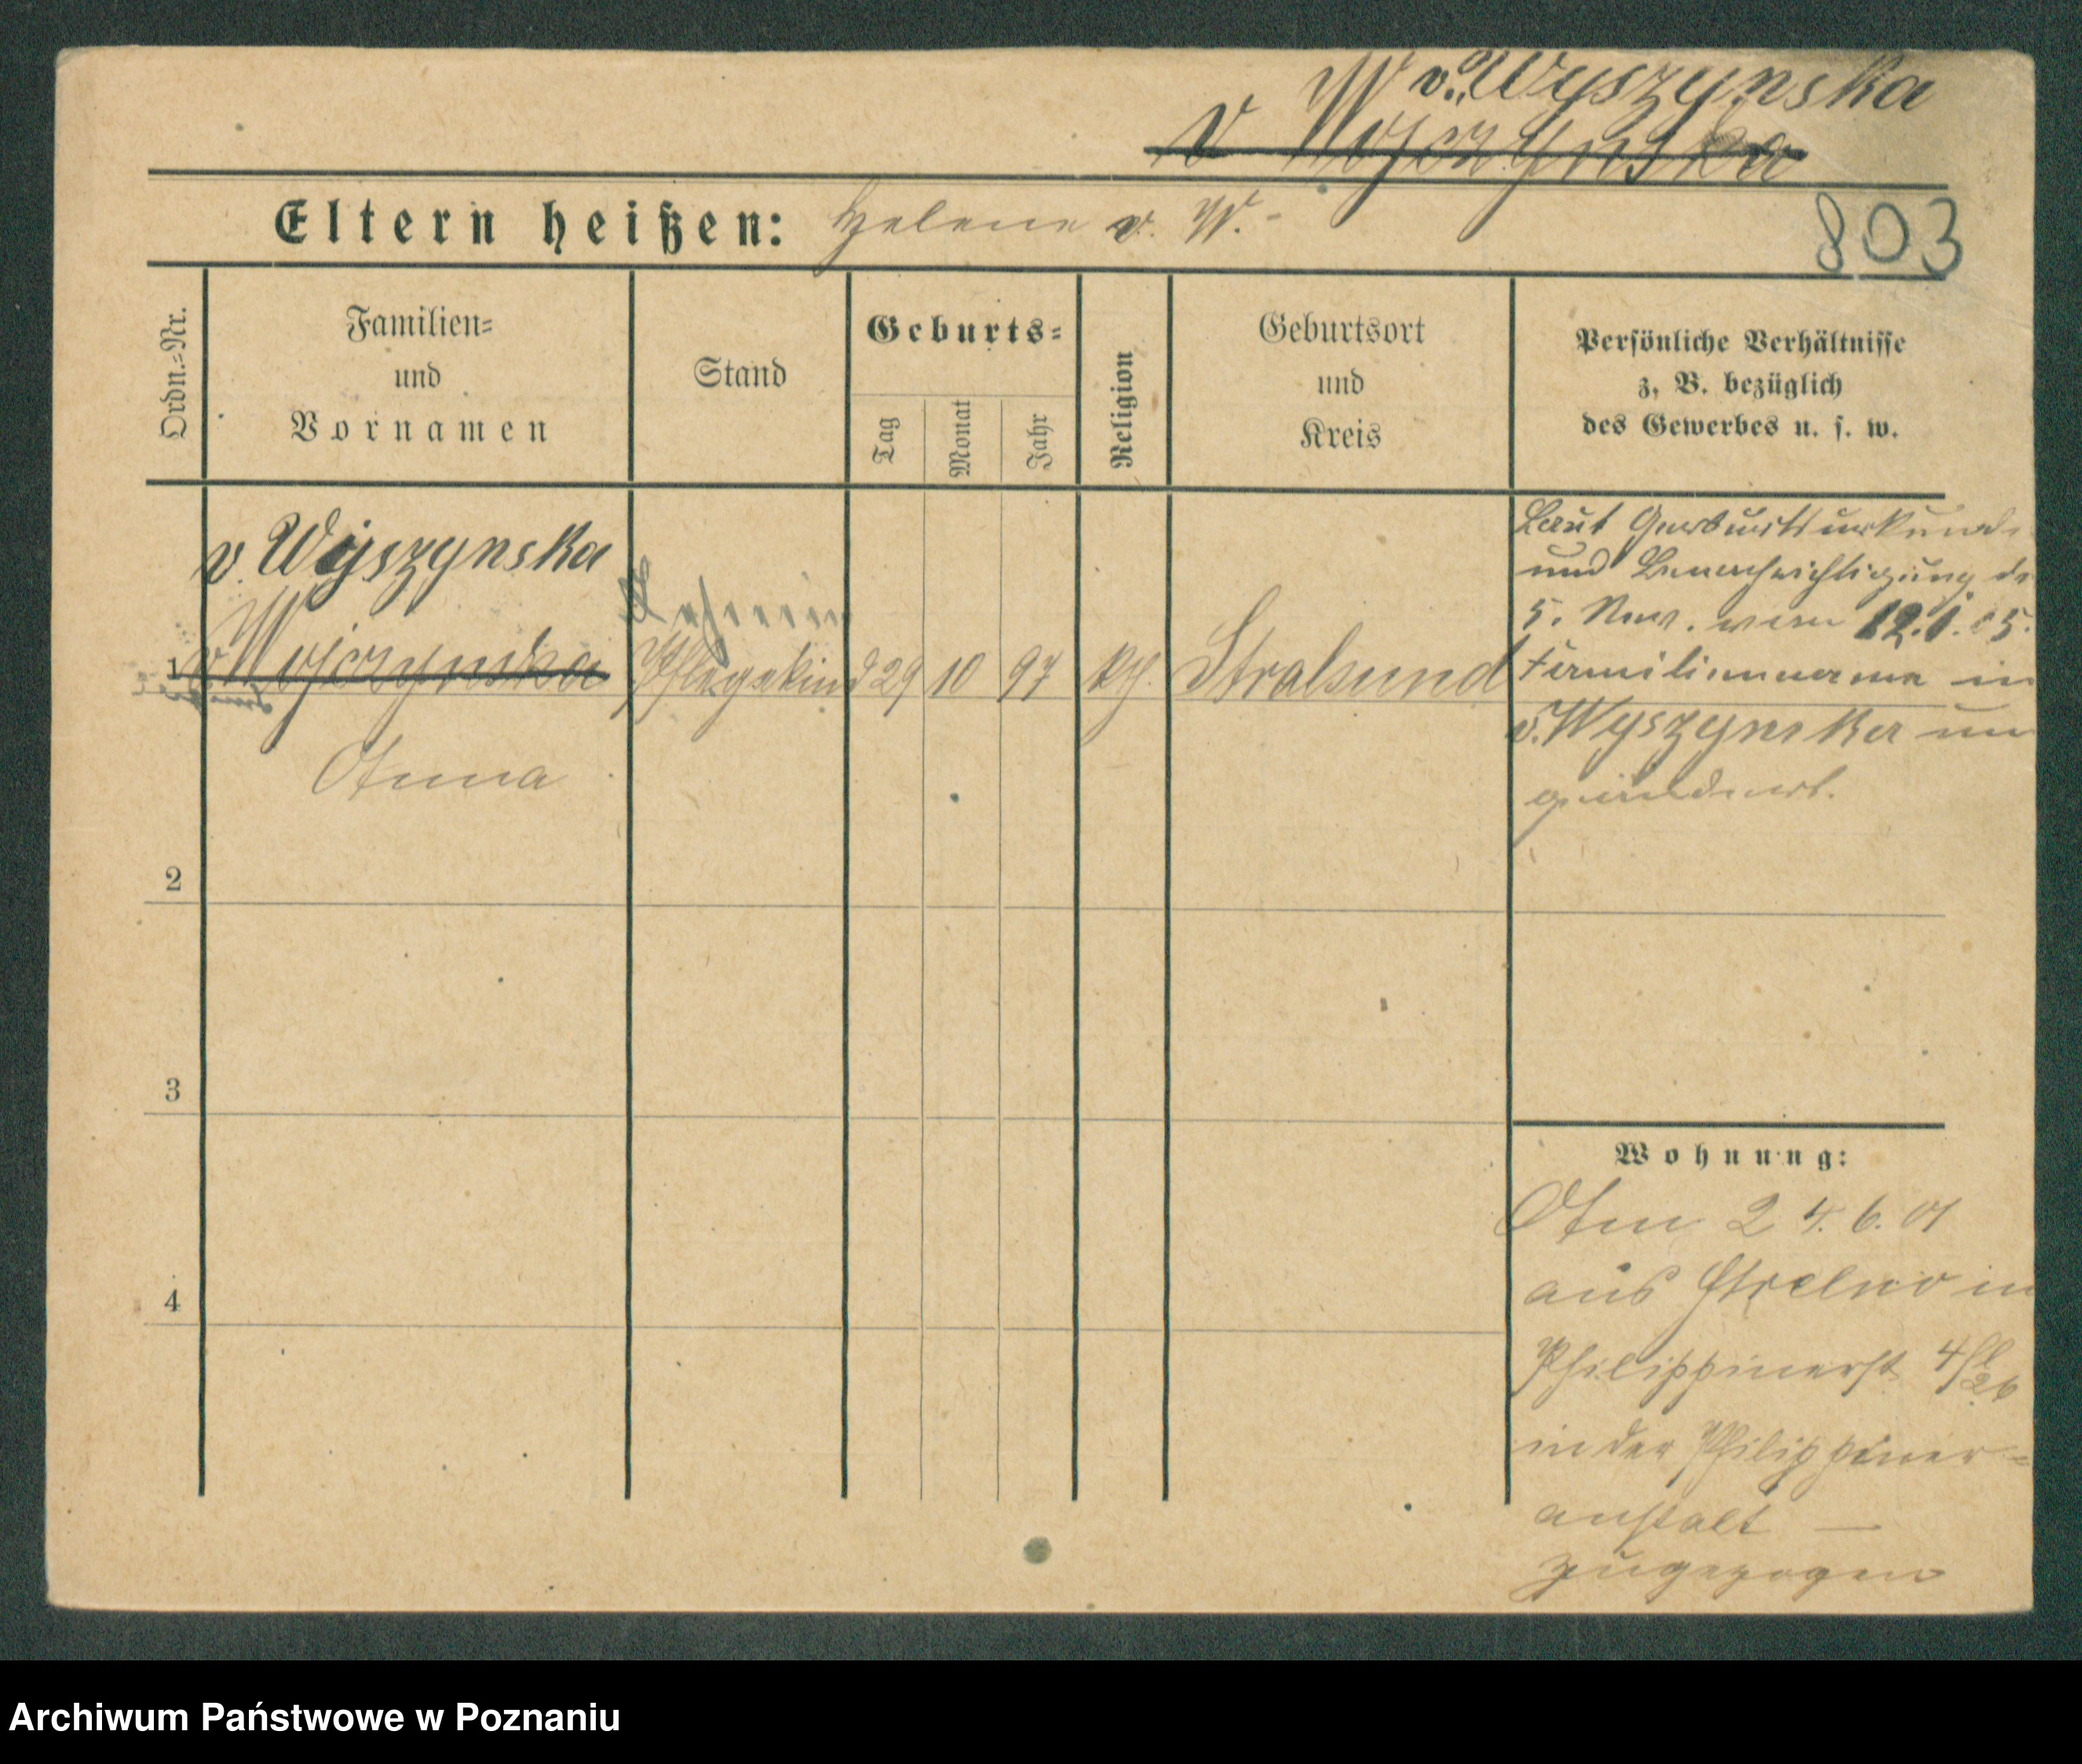 W v. Wyszynska
v Wojczynska
Eltern heißen: Helene v. W. -
803
Ordn.-Nr.
Familien-
und
Vornamen
Stand
Geburts-
Tag
Monat
Jahr
Religion
Geburtsort
und
Kreis
Persönliche Verhältnisse
z. B. bezüglich
des Gewerbes u. s. w.
v. Wyszynska
1 v Wojczynska Pflegekind 29 10 97 kth. Stralsund
Anna
Laut Geburtsurkunde
und Benachrichtigung de
5. Rev. vom 12.1.05.
Familienname in
v. Wyszynska um
geändert.
2
3
4
Wohnung:
Am 24. 6. 01
aus Strelno in
Philippinerst 4/
26
in der Philippiner-
anstalt —
zugezogen
Archiwum Państwowe w Poznaniu